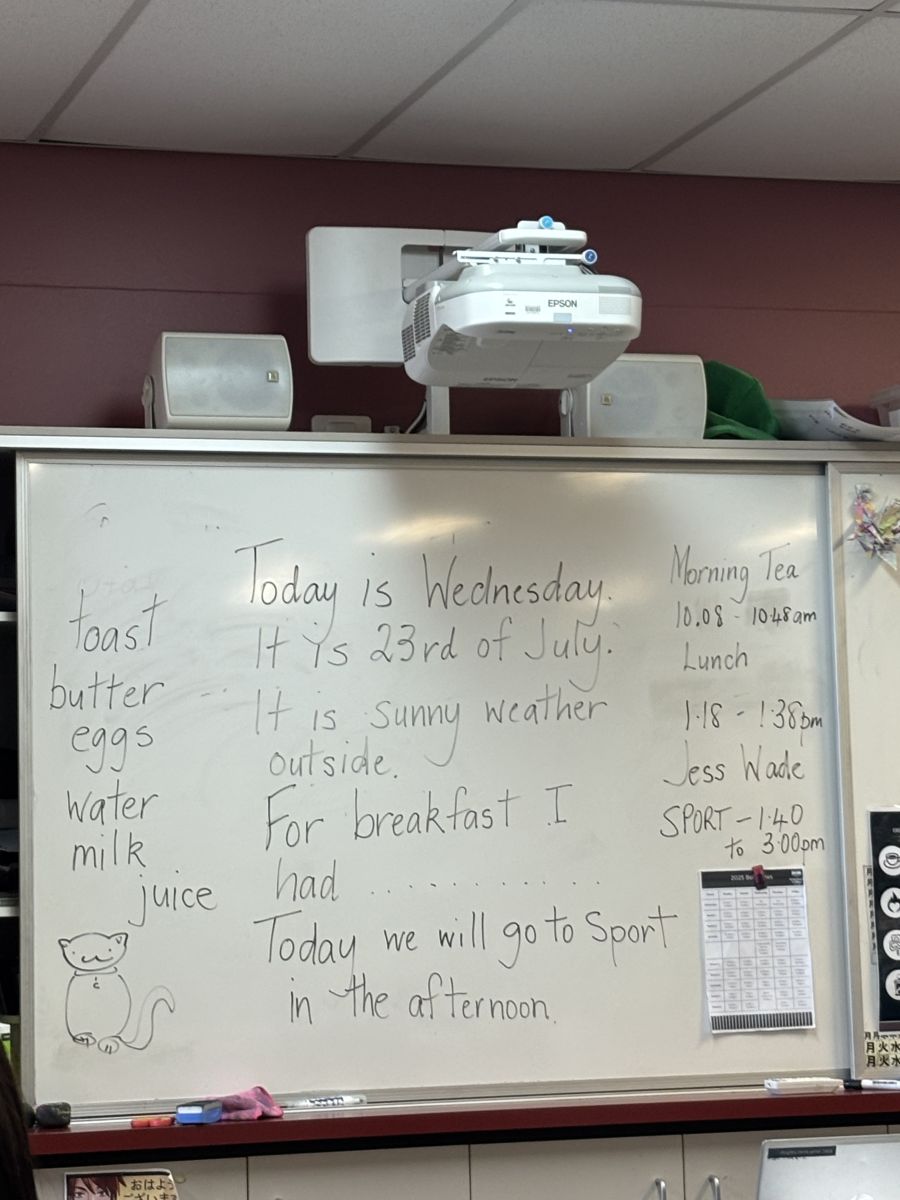 EPSON
EPSON
toast
butter
eggs
water
milk
juice
Today is Wednesday.
It is 23rd of July.
It is sunny weather
outside.
For breakfast I
had ............
Today we will go to Sport
in the afternoon.
Morning Tea
10.08 - 10.48am
Lunch
1.18 - 1.38pm
Jess Wade
SPORT - 1.40
to 3.00pm
2025
月火水
月火水
おはよ
ございま